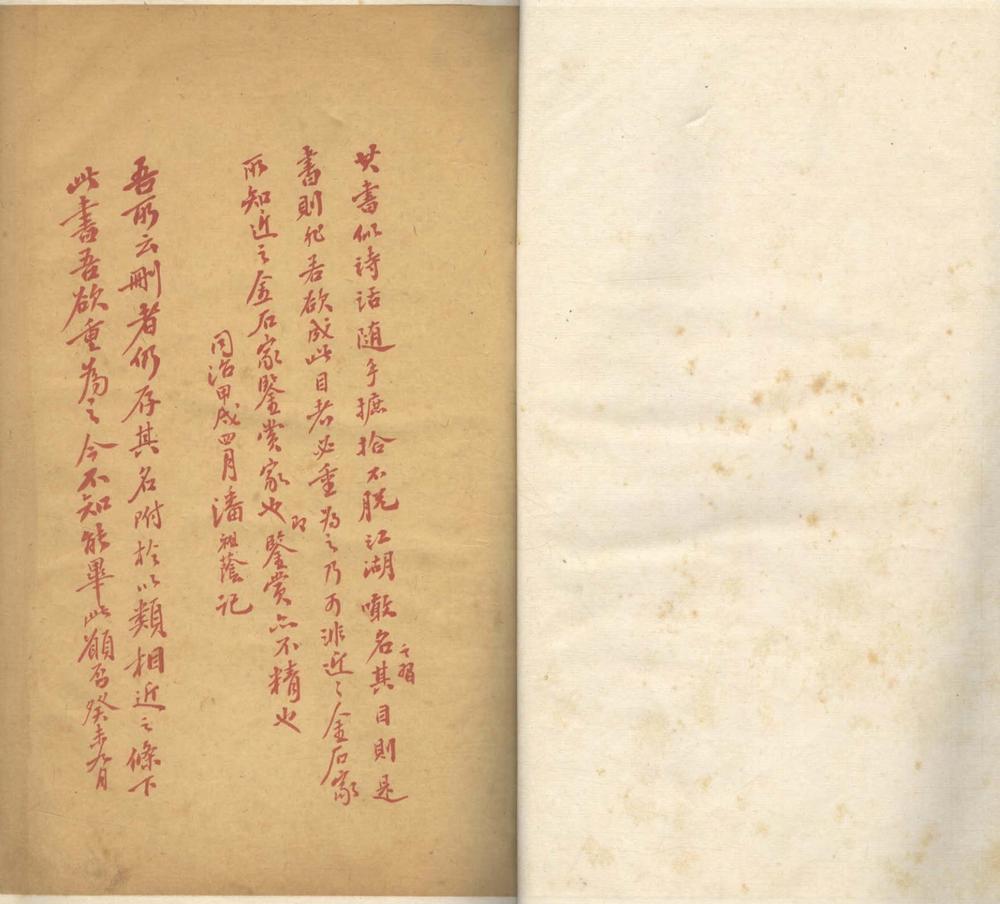 其書似詩話随手摭拾不脱江湖噉名之習其目則是
書則非若欲成此目者必重為之乃可非近之金石家
所知近之金石家鑒賞家也即鑒賞亦不精也
同治甲戌四月潘祖蔭記
吾所云刪者仍存其名附於以類相近之條下
此書吾欲重為之今不知能畢此願否癸未九月